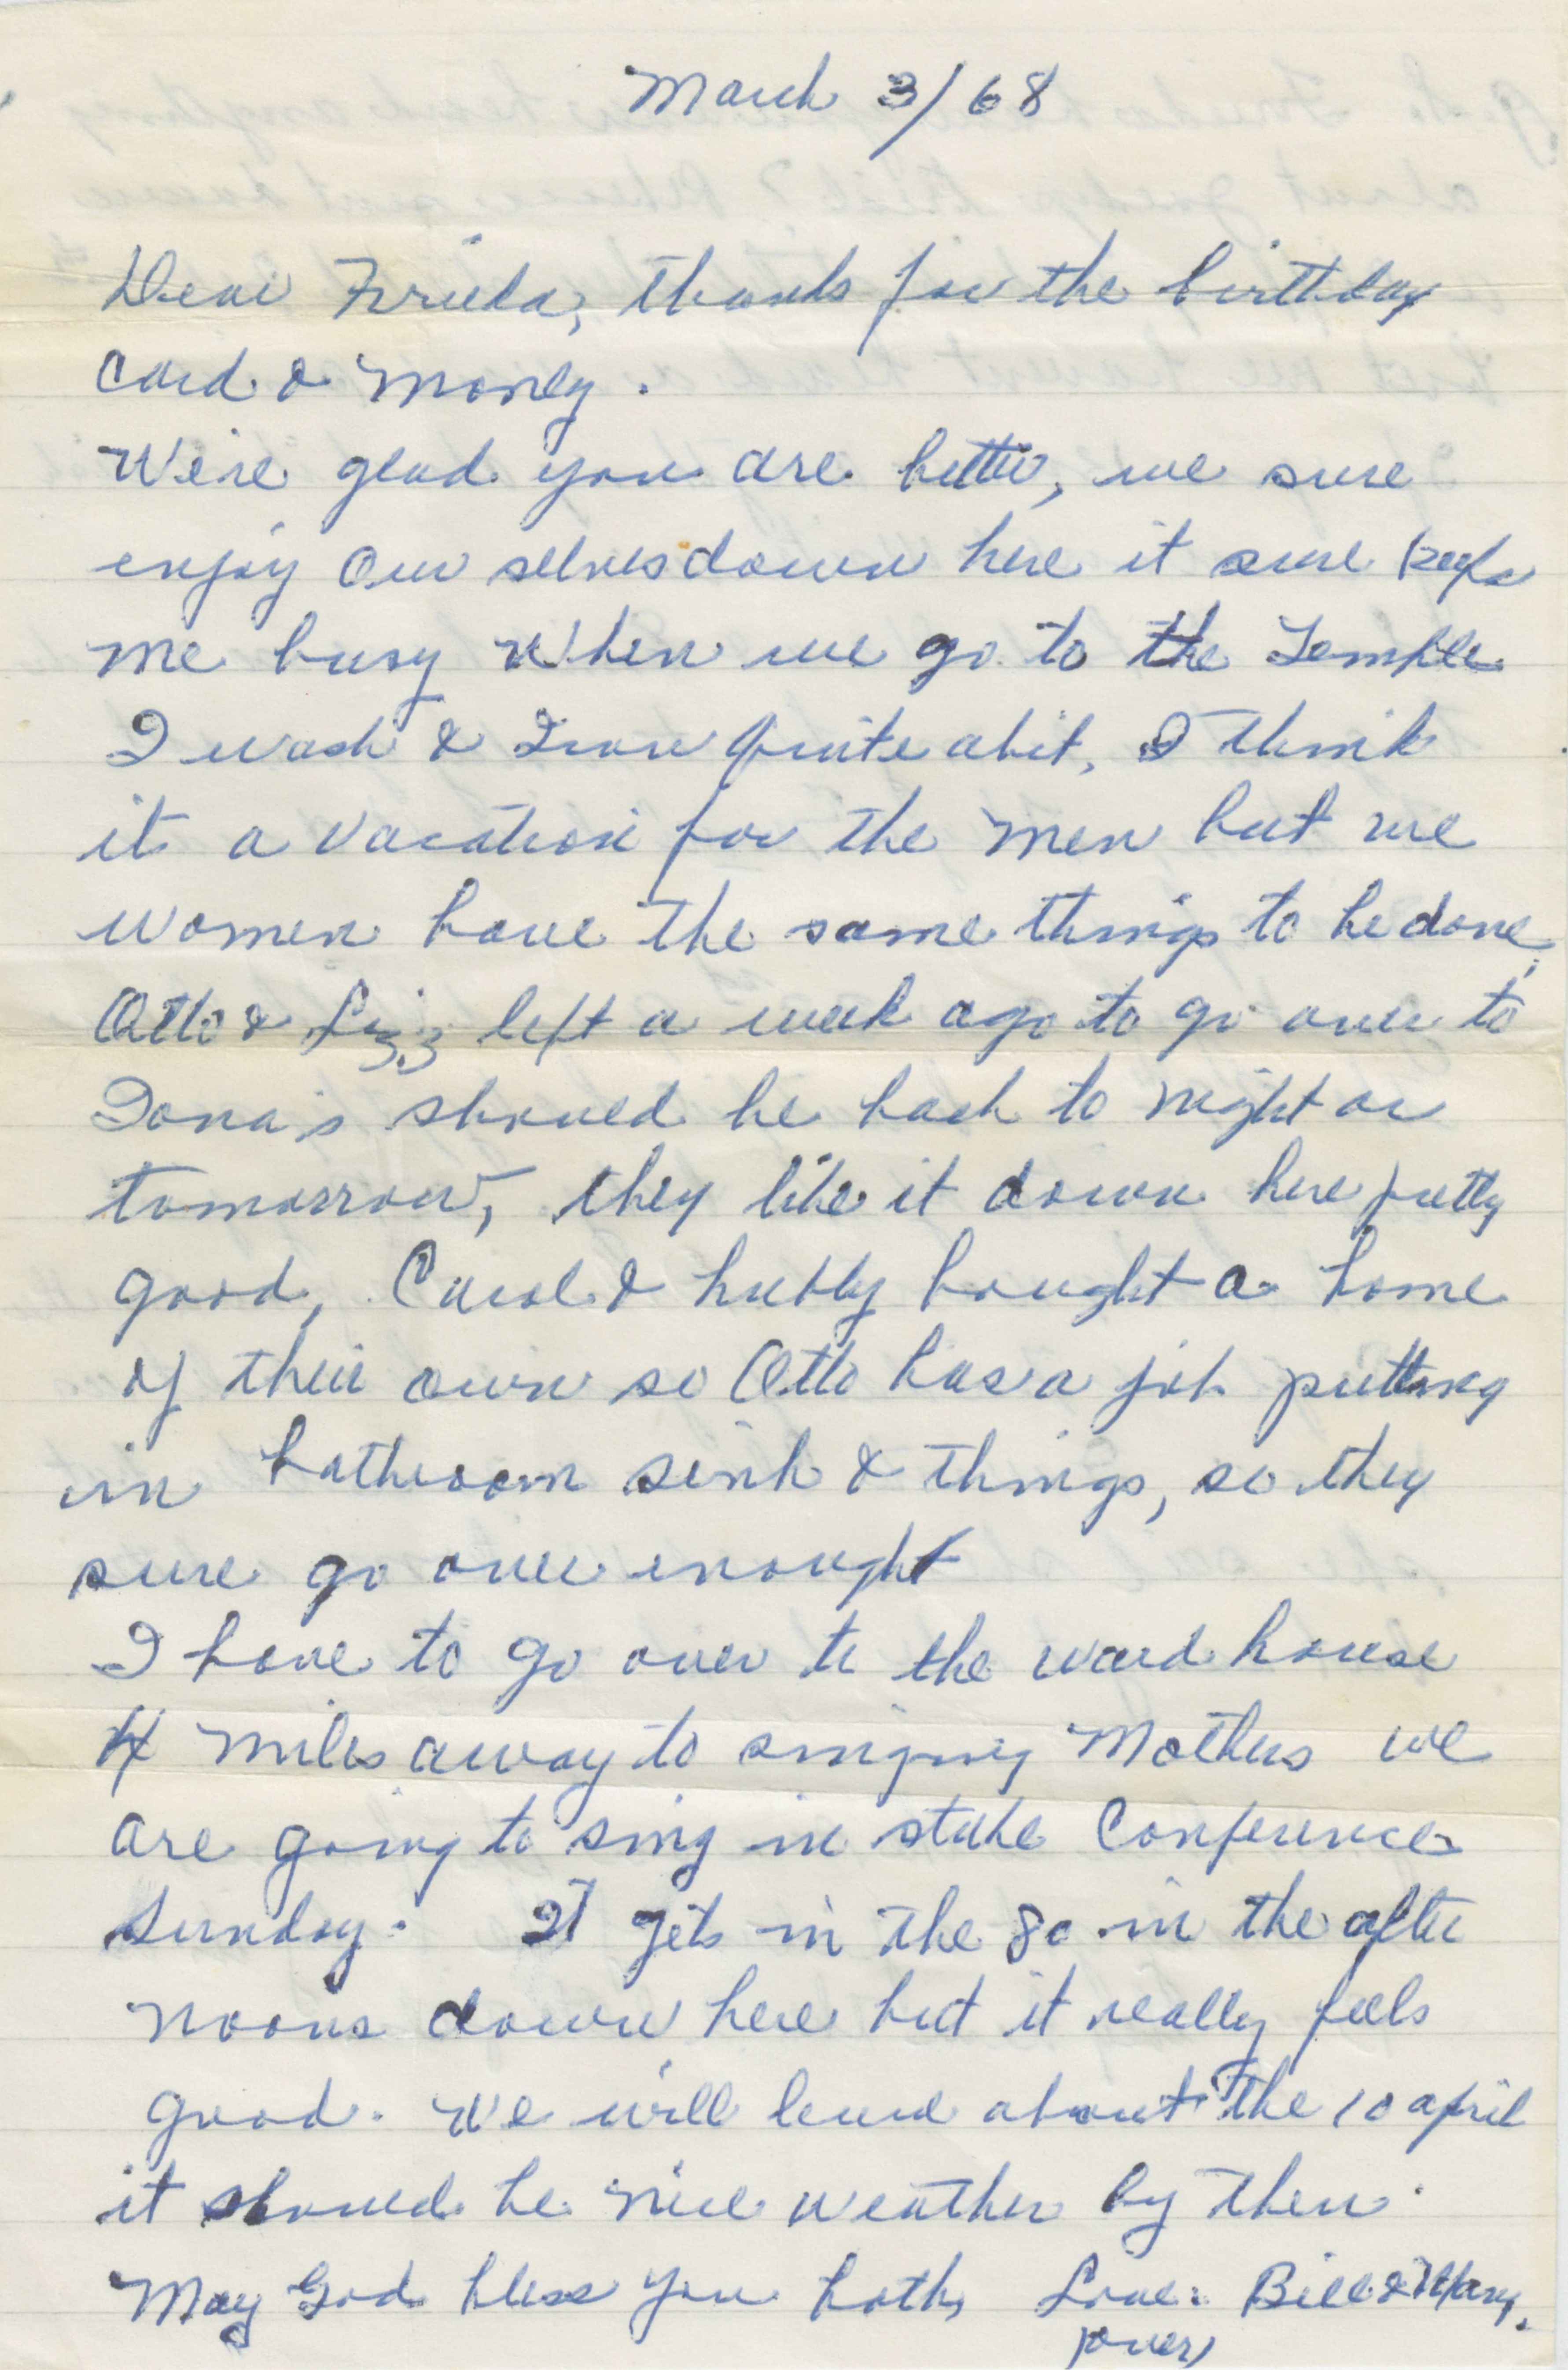 March 3/68
Dear Frieda, thanks for the birthday
Card & money.
We're glad you are better, we sure
enjoy our selves down here it sure keeps
me busy when we go to the Temple
I wash & Iron quite abit, I think
it a vacation for the men but we
women have the same things to be done,
Otto & Lizz left a week ago to go over to
Iona's shoued be back to night or
tomorrow, they like it down here pretty
good, Carol & hubby bought a home
of their own so Otto has a job putting
in bathroom sink & things, so they
sure go over enought
I have to go over to the ward house
4 miles away to singing Mothers we
are going to sing in stake Conference
Sunday. It gets in the 80 in the after
noons down here but it really feels
good. We will leave about the 10 april
it shoued be nice weather by then.
May God bless you both, Love: Bill & Mary.
(over)